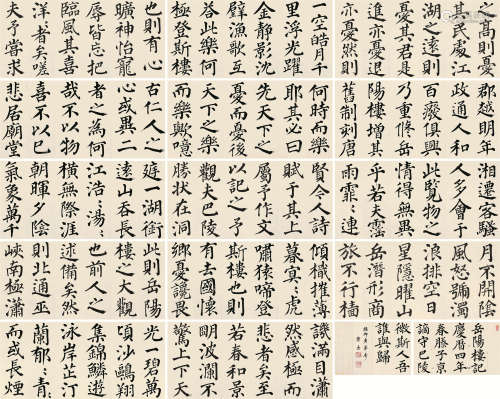 岳陽樓記
慶曆四年
春滕子京
謫守巴陵
郡越明年
政通人和
百廢俱興
乃重修岳
陽樓增其
舊制刻唐
賢今人詩
賦于其上
屬予作文
以記之予
觀夫巴陵
勝狀在洞
庭一湖銜
遠山吞長
江浩〻湯〻
橫無際涯
朝暉夕陰
氣象萬千
此則岳陽
樓之大觀
也前人之
述備矣然
則北通巫
峽南極瀟
湘遷客騷
人多會于
此覽物之
情得無異
乎若夫霪
雨霏〻連
月不開陰
風怒號濁
浪排空日
星隱曜山
岳潛形商
旅不行檣
傾楫摧薄
暮冥〻虎
嘯猿啼登
斯樓也則
有去國懷
鄉憂讒畏
譏滿目蕭
然感極而
悲者矣至
若春和景
明波瀾不
驚上下天
光一碧萬
頃沙鷗翔
集錦鱗游
泳岸芷汀
蘭郁〻青〻
而或長煙
一空皓月千
里浮光躍
金靜影沉
璧漁歌互
答此樂何
極登斯樓
也則有心
曠神怡寵
辱皆忘把
酒臨風其喜
洋〻者矣嗟
夫予嘗求
古仁人之
心或異二
者之為何
哉不以物
喜不以己
悲居廟堂
之高則憂
其民處江
湖之遠則
憂其君是
進亦憂退
亦憂然則
何時而樂
耶其必曰
先天下之
憂而憂後
天下之樂
而樂歟噫
微斯人吾
誰與歸